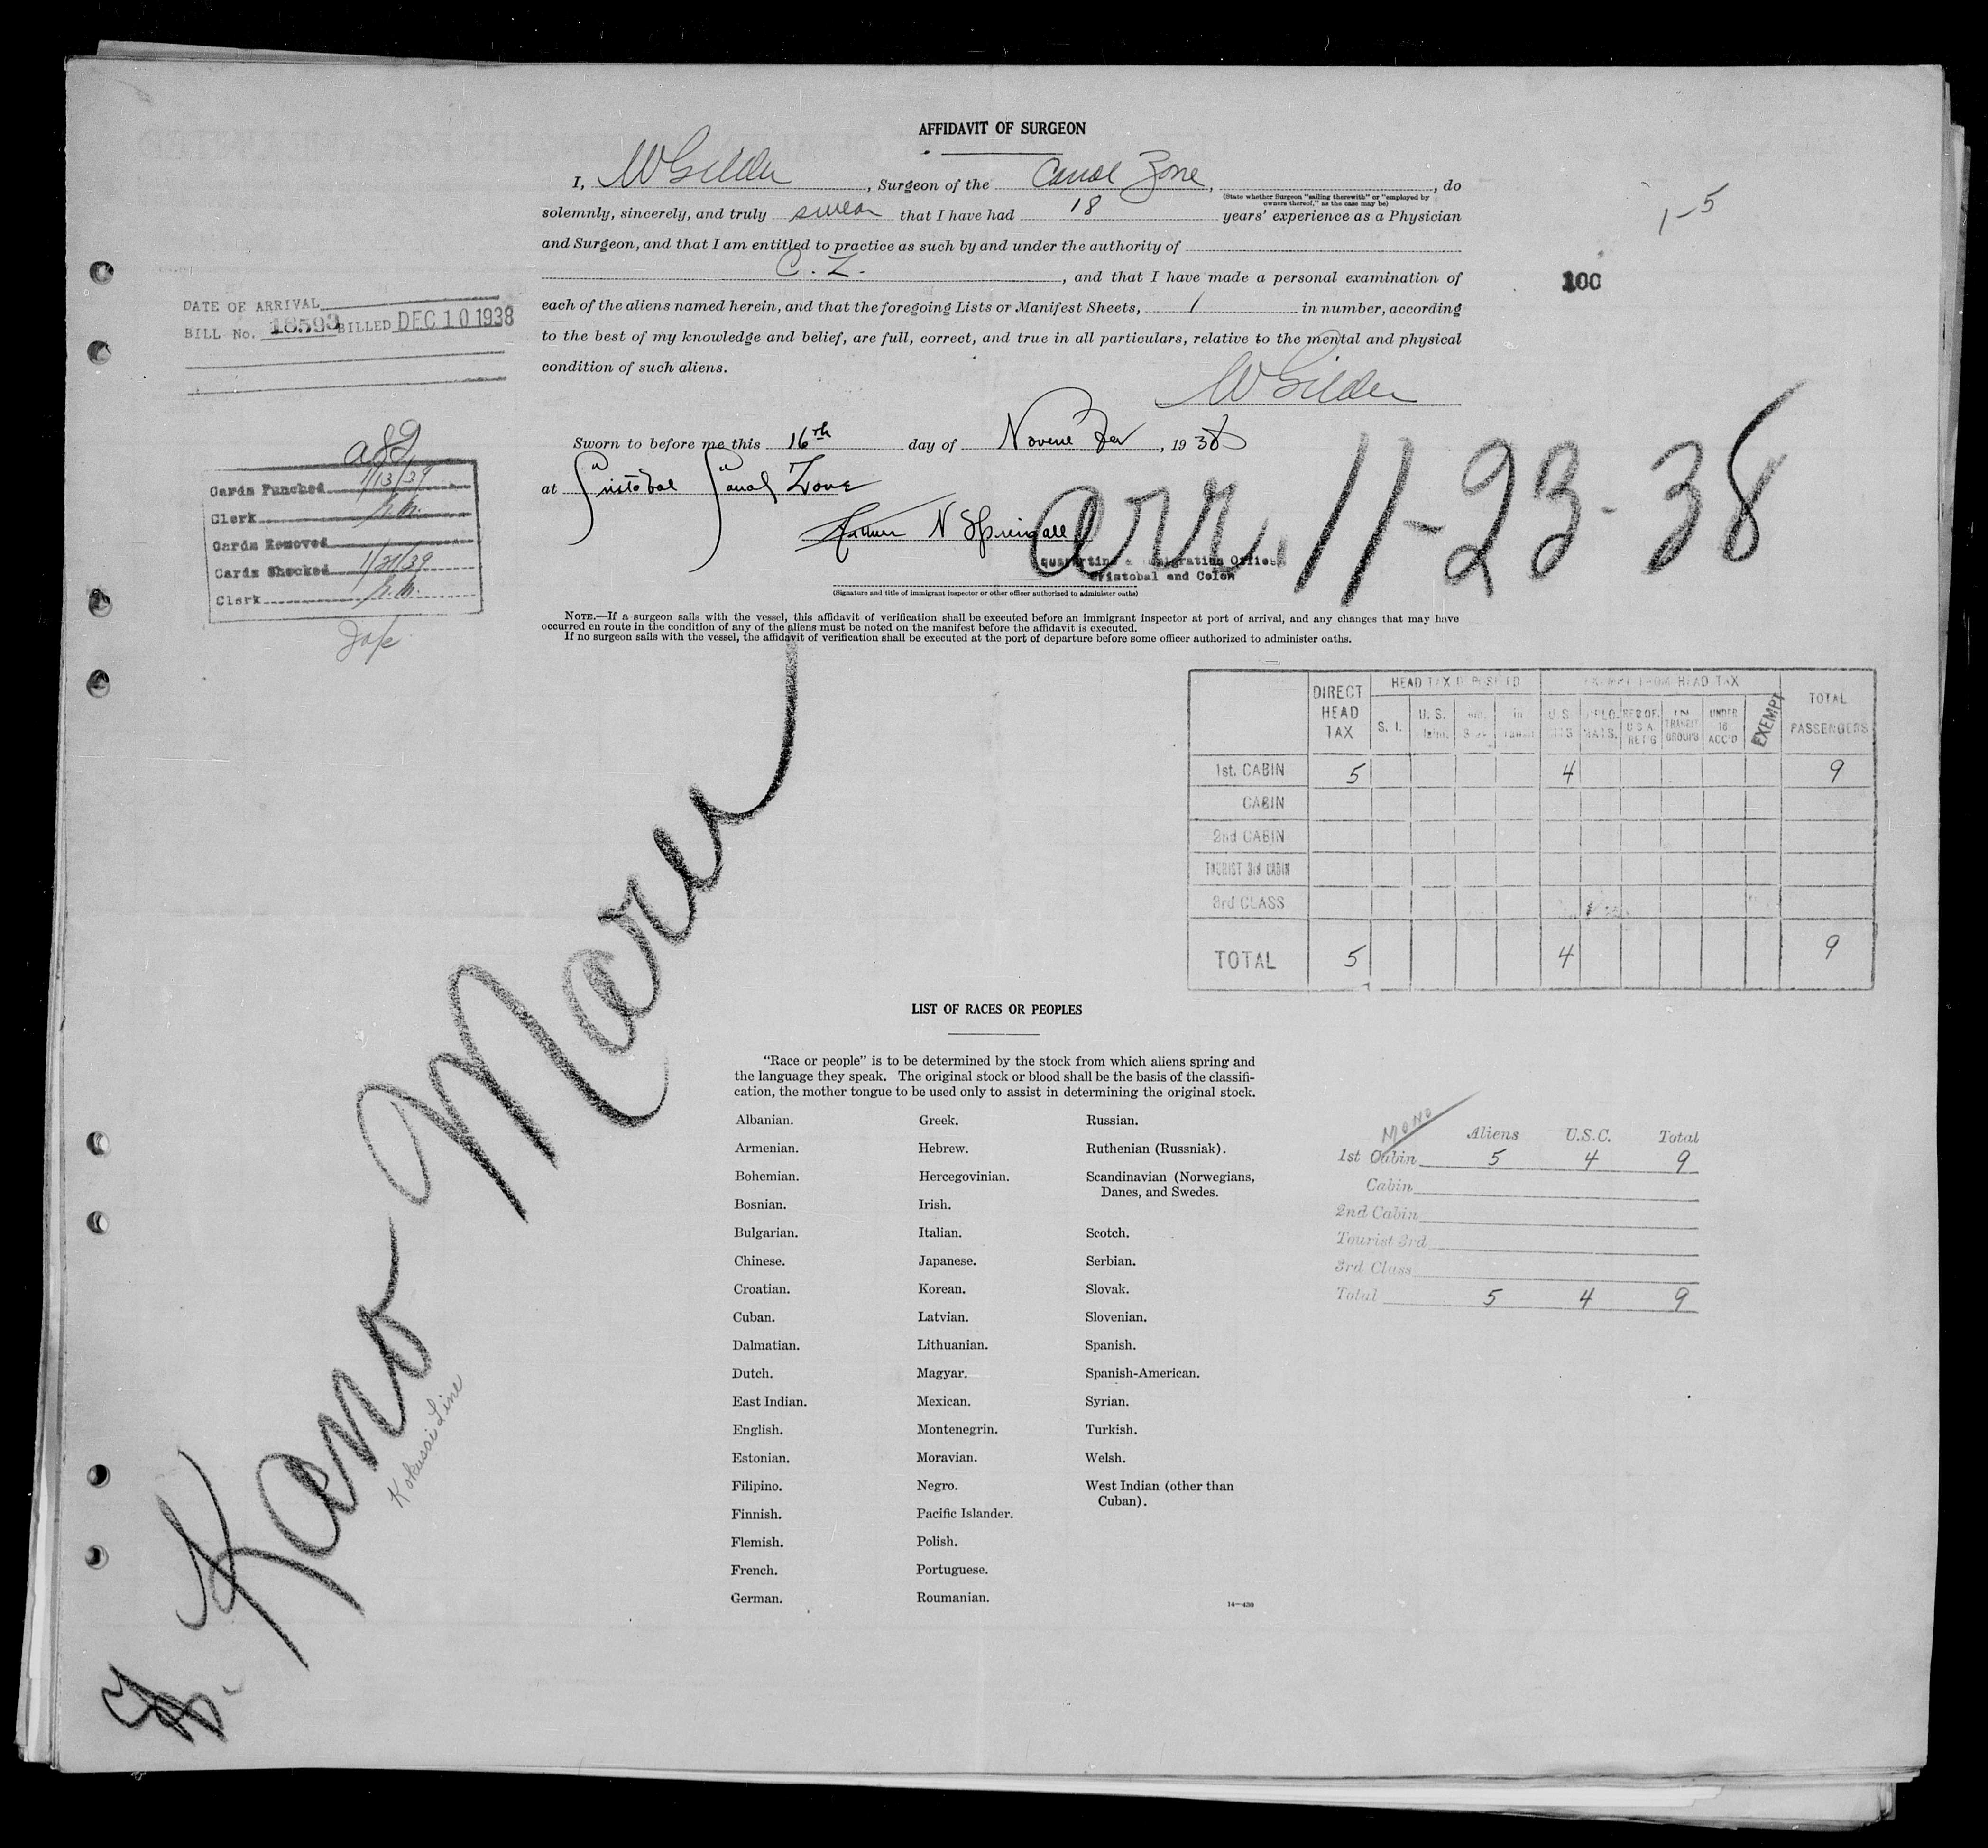 AFFIDAVIT OF SURGEON
I, W Gilder, Surgeon of the Canal Zone, , do
(State whether Surgeon "sailing therewith" or "employed by owners thereof," as the case may be)
solemnly, sincerely, and truly swear that I have had 18 years' experience as a Physician
and Surgeon, and that I am entitled to practice as such by and under the authority of
C. Z. , and that I have made a personal examination of
each of the aliens named herein, and that the foregoing Lists or Manifest Sheets, 1 in number, according
to the best of my knowledge and belief, are full, correct, and true in all particulars, relative to the mental and physical
condition of such aliens.
W Gilder
Sworn to before me this 16th day of November, 1938
at Cristobal Canal Zone
Arthur N Springall
Quarantine & Immigration Officer
Cristobal and Colon
(Signature and title of immigrant inspector or other officer authorized to administer oaths)
1-5
100
arr. 11-23-38
DATE OF ARRIVAL
BILL No. 18593 BILLED DEC 10 1938
Cards Punched 1/13/39
Clerk
Cards Removed
Cards Checked 1/21/39
Clerk
Jap.
NOTE.—If a surgeon sails with the vessel, this affidavit of verification shall be executed before an immigrant inspector at port of arrival, and any changes that may have
occurred en route in the condition of any of the aliens must be noted on the manifest before the affidavit is executed.
If no surgeon sails with the vessel, the affidavit of verification shall be executed at the port of departure before some officer authorized to administer oaths.
DIRECT HEAD TAX HEAD TAX DEPOSITED EXEMPT FROM HEAD TAX TOTAL PASSENGERS
S. I. U. S. in U.S. DIPLOMATS. RES OF. U S A RET'G TRANSIT GROUPS UNDER 16 ACC'D EXEMPT
1st. CABIN 5 4 9
CABIN
2nd CABIN
TOURIST 3rd CABIN
3rd CLASS
TOTAL 5 4 9
Kano Maru
Kokusai Line
LIST OF RACES OR PEOPLES
"Race or people" is to be determined by the stock from which aliens spring and
the language they speak. The original stock or blood shall be the basis of the classifi-
cation, the mother tongue to be used only to assist in determining the original stock.
Albanian. Greek. Russian.
Armenian. Hebrew. Ruthenian (Russniak).
Bohemian. Hercegovinian. Scandinavian (Norwegians,
Danes, and Swedes.
Bosnian. Irish.
Bulgarian. Italian. Scotch.
Chinese. Japanese. Serbian.
Croatian. Korean. Slovak.
Cuban. Latvian. Slovenian.
Dalmatian. Lithuanian. Spanish.
Dutch. Magyar. Spanish-American.
East Indian. Mexican. Syrian.
English. Montenegrin. Turkish.
Estonian. Moravian. Welsh.
Filipino. Negro. West Indian (other than
Cuban).
Finnish. Pacific Islander.
Flemish. Polish.
French. Portuguese.
German. Roumanian.
14—430
MONO
Aliens U.S.C. Total
1st Cabin 5 4 9
Cabin
2nd Cabin
Tourist 3rd
3rd Class
Total 5 4 9